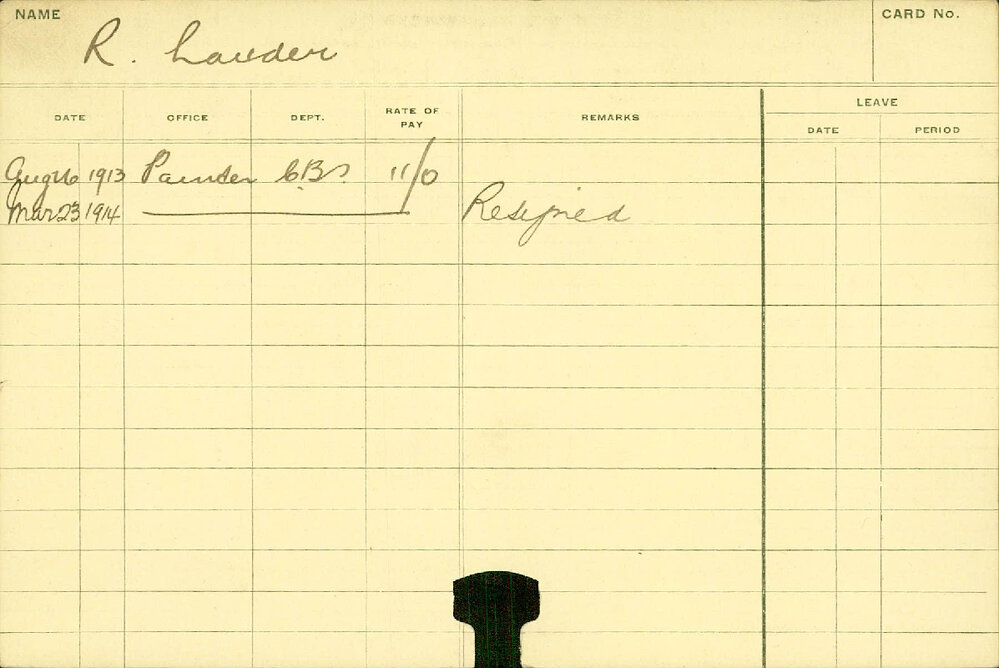 NAME
CARD No.
R. Lauder
DATE OFFICE DEPT. RATE OF PAY REMARKS LEAVE
DATE PERIOD
Aug 16 1913 Painter C.B's 11/0
Mar 23 1914 Resigned